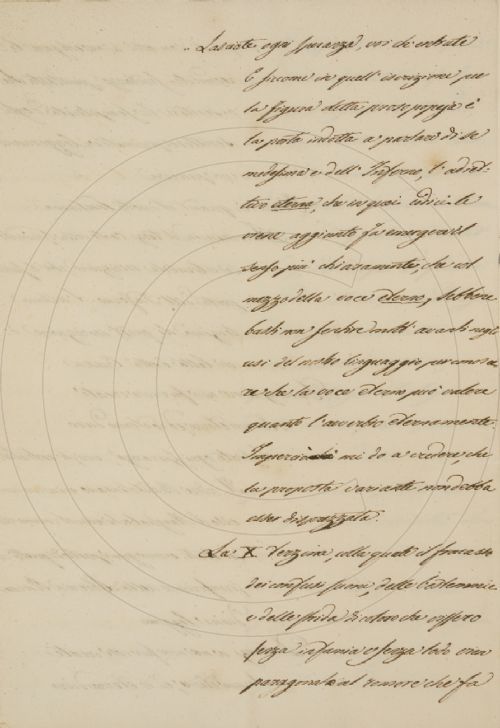 Lasciate ogni speranza, voi che entrate
E siccome in quell' iscrizione per
la figura della prosopopeja è
la porta indotta a parlare di se
medesima e dell' Inferno, l' adiet-
tivo eterna, che in quei codici le
viene aggiunto fa emergere il
senso più chiaramente, che col
mezzo della voce eterno, sebbene
basti non sentire molt' avanti negli
usi del nostro linguaggio per conosce
re che la voce eterno può valere
quanto l' avverbio eternamente.
Imperciò mi do a credere, che
la proposta variante non debba
esser disprezzata.
La X terzina, nella quale il fracasso
dei confusi suoni, delle bestemmie
e delle strida di coloro che vissero
senza infamia e senza lodo era
paragonato al rumore che fa